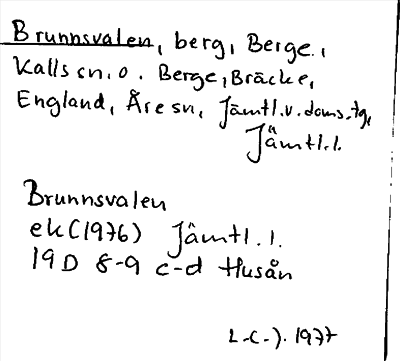 Brunnsvalen, berg, Berge,
Kalls sn. o. Berge, Bräcke,
England, Åre sn, Jämtl. v. doms. tg,
Jämtl. l.
Brunnsvalen
ek (1976) Jämtl. l.
19D 8-9 c-d Husån
L-C-J. 1977